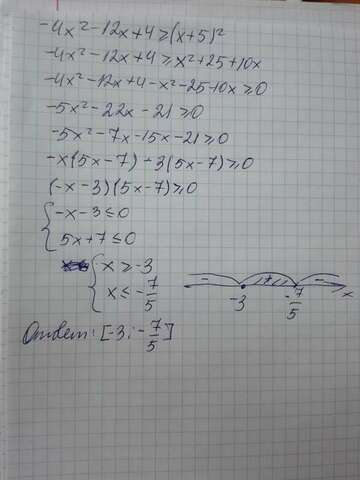 -4x²-12x+4≥(x+5)²
-4x²-12x+4≥x²+25+10x
-4x²-12x+4-x²-25-10x≥0
-5x²-22x-21≥0
-5x²-7x-15x-21≥0
-x(5x-7)-3(5x-7)≥0
(-x-3)(5x-7)≥0
{-x-3≤0
5x+7≤0
{x≥-3
x≤-7/5
- + -
-3 -7/5 x
Ответ: [-3; -7/5]